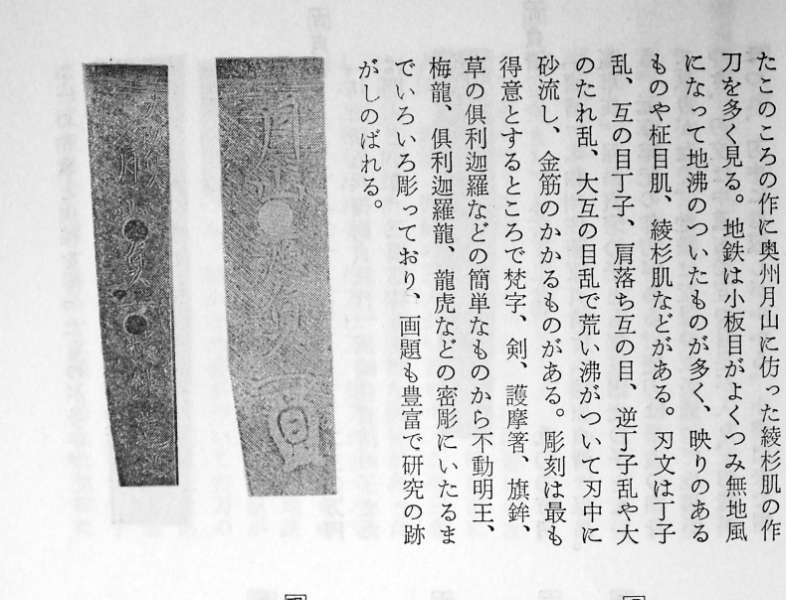 たこのころの作に奥州月山に仿った綾杉肌の作
刀を多く見る。地鉄は小板目がよくつみ無地風
になって地沸のついたものが多く、映りのある
ものや柾目肌、綾杉肌などがある。刃文は丁子
乱、互の目丁子、肩落ち互の目、逆丁子乱や大
のたれ乱、大互の目乱で荒い沸がついて刃中に
砂流し、金筋のかかるものがある。彫刻は最も
得意とするところで梵字、剣、護摩箸、旗鉾、
草の倶利迦羅などの簡単なものから不動明王、
梅龍、倶利迦羅龍、龍虎などの密彫にいたるま
でいろいろ彫っており、画題も豊富で研究の跡
がしのばれる。
月山
貞一